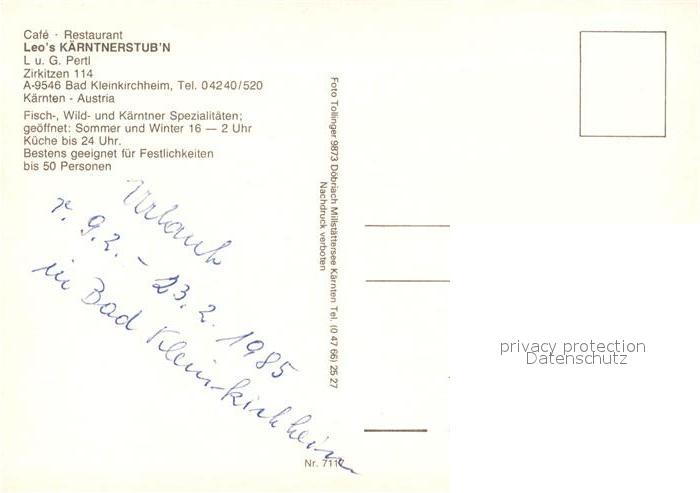 Café · Restaurant
Leo's KÄRNTNERSTUB'N
L u. G. Pertl
Zirkitzen 114
A-9546 Bad Kleinkirchheim, Tel. 04240/520
Kärnten - Austria
Fisch-, Wild- und Kärntner Spezialitäten;
geöffnet: Sommer und Winter 16 — 2 Uhr
Küche bis 24 Uhr.
Bestens geeignet für Festlichkeiten
bis 50 Personen
Urlaub
v. 9.2. - 23.2.1985
in Bad Kleinkirchheim
Foto Tollinger 9873 Döbriach Millstättersee Kärnten Tel. (0 47 66) 25 27
Nachdruck verboten
Nr. 711
privacy protection
Datenschutz